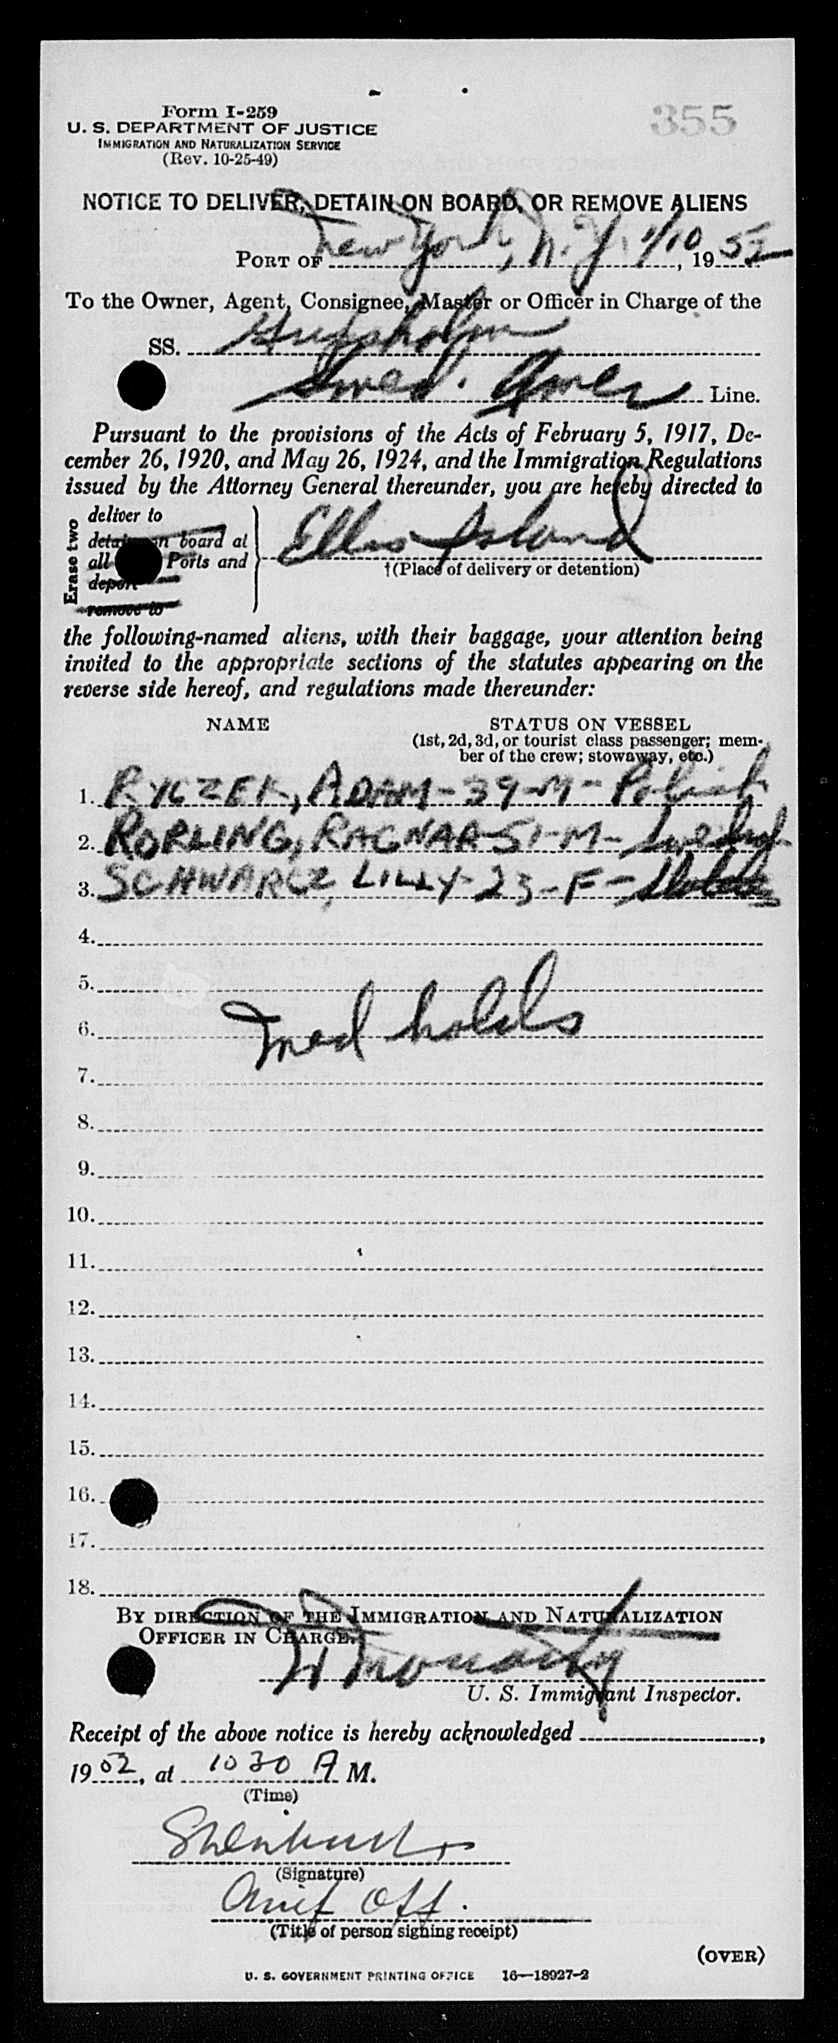 Form I-259
355
U. S. DEPARTMENT OF JUSTICE
IMMIGRATION AND NATURALIZATION SERVICE
(Rev. 10-25-49)
NOTICE TO DELIVER, DETAIN ON BOARD, OR REMOVE ALIENS
PORT OF New York, N.Y. 1/10, 1952
To the Owner, Agent, Consignee, Master or Officer in Charge of the
SS. Gripsholm
Swed. Amer Line.
Pursuant to the provisions of the Acts of February 5, 1917, De-
cember 26, 1920, and May 26, 1924, and the Immigration Regulations
issued by the Attorney General thereunder, you are hereby directed to
Erase two
deliver to
detain on board at
all Ports and
deport
remove to
Ellis Island
†(Place of delivery or detention)
the following-named aliens, with their baggage, your attention being
invited to the appropriate sections of the statutes appearing on the
reverse side hereof, and regulations made thereunder:
NAME STATUS ON VESSEL
(1st, 2d, 3d, or tourist class passenger; mem-
ber of the crew; stowaway, etc.)
1. RYCZEK, ADAM-39-M-Polish
2. RORLING, RAGNAR-51-M-Swedish
3. SCHWARCZ, LILLY-23-F-
4.
5.
6. Med holds
7.
8.
9.
10.
11.
12.
13.
14.
15.
16.
17.
18.
BY DIRECTION OF THE IMMIGRATION AND NATURALIZATION
OFFICER IN CHARGE.
U. S. Immigrant Inspector.
Receipt of the above notice is hereby acknowledged
1952, at 10 30 A M.
(Time)
(Signature)
Chief Off.
(Title of person signing receipt)
(OVER)
U. S. GOVERNMENT PRINTING OFFICE 16—18927-2